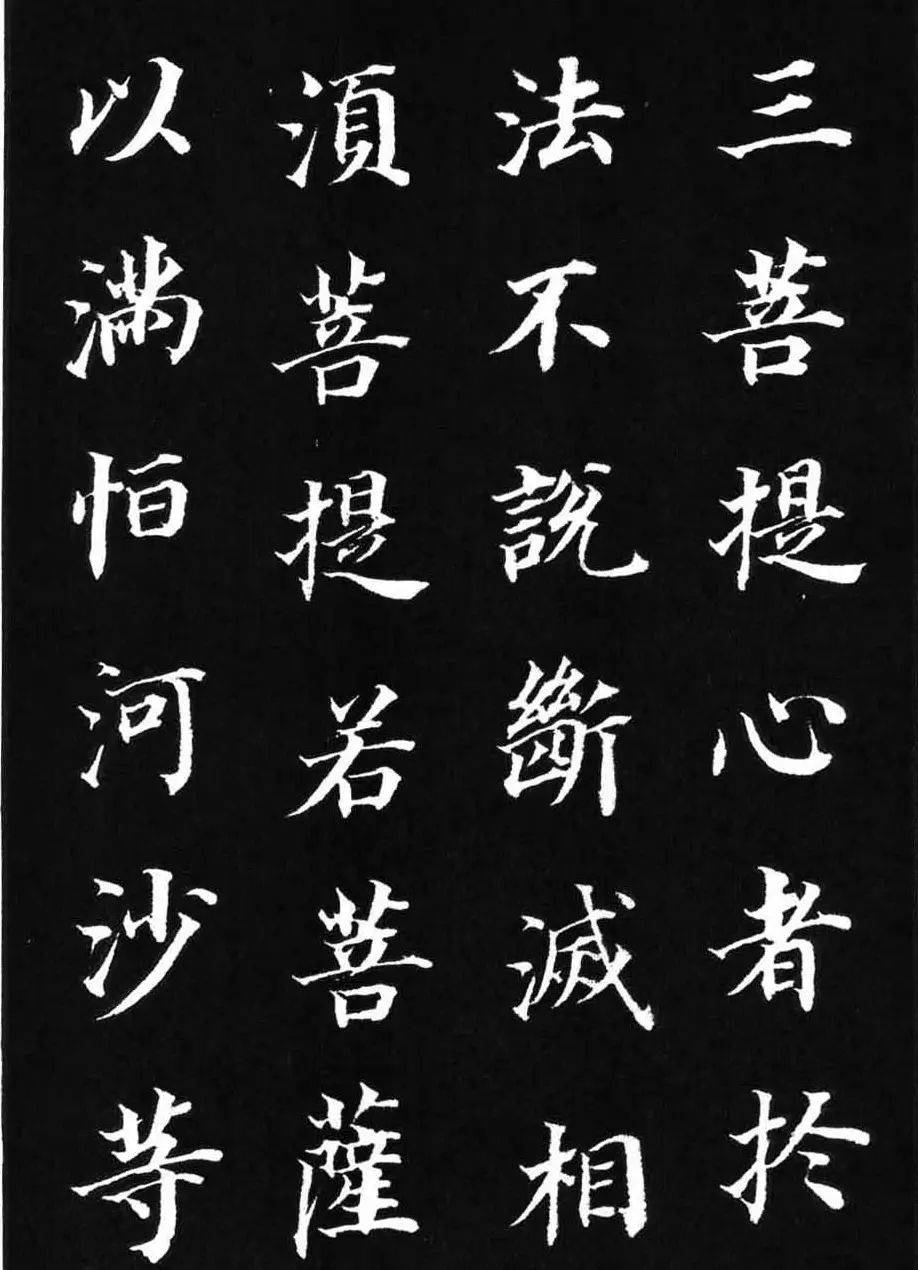 三菩提心者於
法不説斷滅相
湏菩提若菩薩
以滿恒河沙等